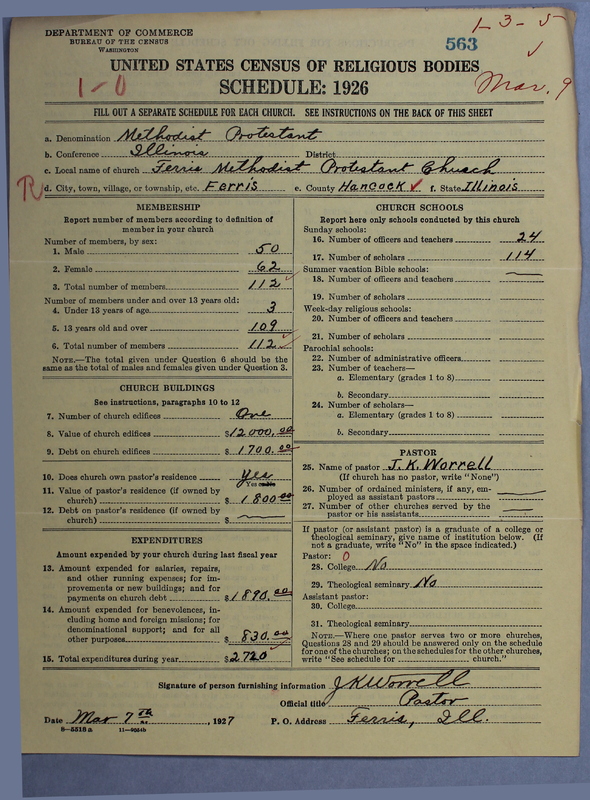 DEPARTMENT OF COMMERCE
BUREAU OF THE CENSUS
WASHINGTON
1-3-5
563
UNITED STATES CENSUS OF RELIGIOUS BODIES
1-0
SCHEDULE: 1926
Mar. 9
FILL OUT A SEPARATE SCHEDULE FOR EACH CHURCH. SEE INSTRUCTIONS ON THE BACK OF THIS SHEET
a. Denomination Methodist Protestant
b. Conference Illinois District
c. Local name of church Ferris Methodist Protestant Church
R d. City, town, village, or township, etc. Ferris e. County Hancock ✓ f. State Illinois
MEMBERSHIP
Report number of members according to definition of
member in your church
Number of members, by sex:
1. Male 50
2. Female 62
3. Total number of members 112
Number of members under and over 13 years old:
4. Under 13 years of age 3
5. 13 years old and over 109
6. Total number of members 112
NOTE.—The total given under Question 6 should be the
same as the total of males and females given under Question 3.
CHURCH BUILDINGS
See instructions, paragraphs 10 to 12
7. Number of church edifices One
8. Value of church edifices $12000.00
9. Debt on church edifices $1700.00
10. Does church own pastor's residence? Yes
Yes or no
11. Value of pastor's residence (if owned by
church) $1800.00
12. Debt on pastor's residence (if owned by
church) $ —
EXPENDITURES
Amount expended by your church during last fiscal year
13. Amount expended for salaries, repairs,
and other running expenses; for im-
provements or new buildings; and for
payments on church debt $1890.00
14. Amount expended for benevolences, in-
cluding home and foreign missions; for
denominational support; and for all
other purposes $830.00
15. Total expenditures during year $2720
CHURCH SCHOOLS
Report here only schools conducted by this church
Sunday schools:
16. Number of officers and teachers 24
17. Number of scholars 114
Summer vacation Bible schools:
18. Number of officers and teachers —
19. Number of scholars
Week-day religious schools:
20. Number of officers and teachers
21. Number of scholars
Parochial schools:
22. Number of administrative officers
23. Number of teachers—
a. Elementary (grades 1 to 8)
b. Secondary
24. Number of scholars—
a. Elementary (grades 1 to 8)
b. Secondary
PASTOR
25. Name of pastor J. K. Worrell
(If church has no pastor, write "None")
26. Number of ordained ministers, if any, em-
ployed as assistant pastors —
27. Number of other churches served by the
pastor or his assistants —
If pastor (or assistant pastor) is a graduate of a college or
theological seminary, give name of institution below. (If
not a graduate, write "No" in the space indicated.)
Pastor: 0
28. College No
29. Theological seminary No
Assistant pastor:
30. College
31. Theological seminary
NOTE.—Where one pastor serves two or more churches,
Questions 28 and 29 should be answered only on the schedule
for one of the churches; on the schedules for the other churches,
write "See schedule for church."
Signature of person furnishing information J K Worrell
Official title Pastor
Date Mar 7th, 1927 P. O. Address Ferris, Ill.
8-5518a 11-9054b